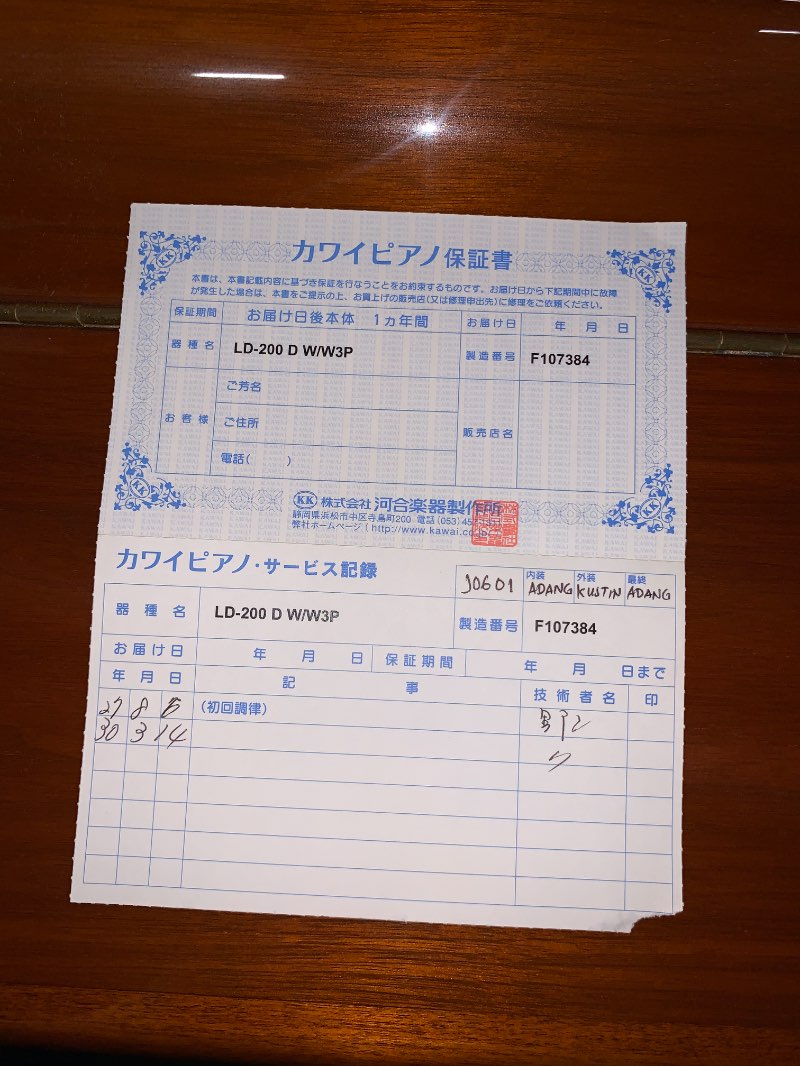 カワイピアノ保証書
本書は、本書記載内容に基づき保証を行なうことをお約束するものです。お届け日から下記期間中に故障
が発生した場合は、本書をご提示の上、お買上げの販売店(又は修理申出先)に修理をご依頼ください。
保証期間 お届け日後本体 1ヵ年間 お届け日 年 月 日
器種名 LD-200 D W/W3P 製造番号 F107384
お客様 ご芳名
ご住所 販売店名
電話( )
KK 株式会社 河合楽器製作所
静岡県浜松市中区寺島町200 電話(053)45
弊社ホームページ(http://www.kawai.co.jp
カワイピアノ・サービス記録
J0601 内装 ADANG 外装 KUSTIN 最終 ADANG
器種名 LD-200 D W/W3P 製造番号 F107384
お届け日 年 月 日 保証期間 年 月 日まで
年 月 日 記事 技術者名 印
27 8 (初回調律)
30 3 14